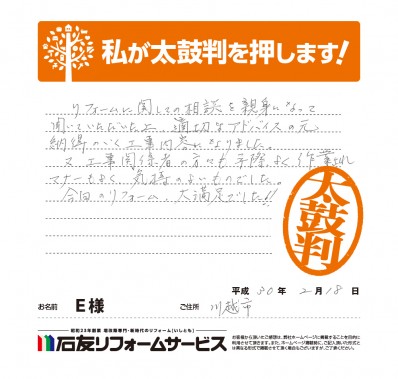 私が太鼓判を押します!
リフォームに関しての相談を親身になって
聞いていただいた上、適切なアドバイスの元、
納得のいく工事内容になりました。
又、工事関係者の方々も手際よく作業され
マナーもよく、気持のよいものでした。
今回のリフォーム、大満足でした!!
太鼓判
平成 30年 2月18日
お名前 E様 ご住所 川越市
昭和23年創業 増改築専門・新時代のリフォーム[いしとも]
石友リフォームサービス
お客様から頂いたご感想は、弊社ホームページに掲載することを目的に
利用させて頂きます。また、ホームページ掲載時に、ご記入頂いた形式と
は異なる形式で掲載させて頂く場合もございますが、ご了承ください。